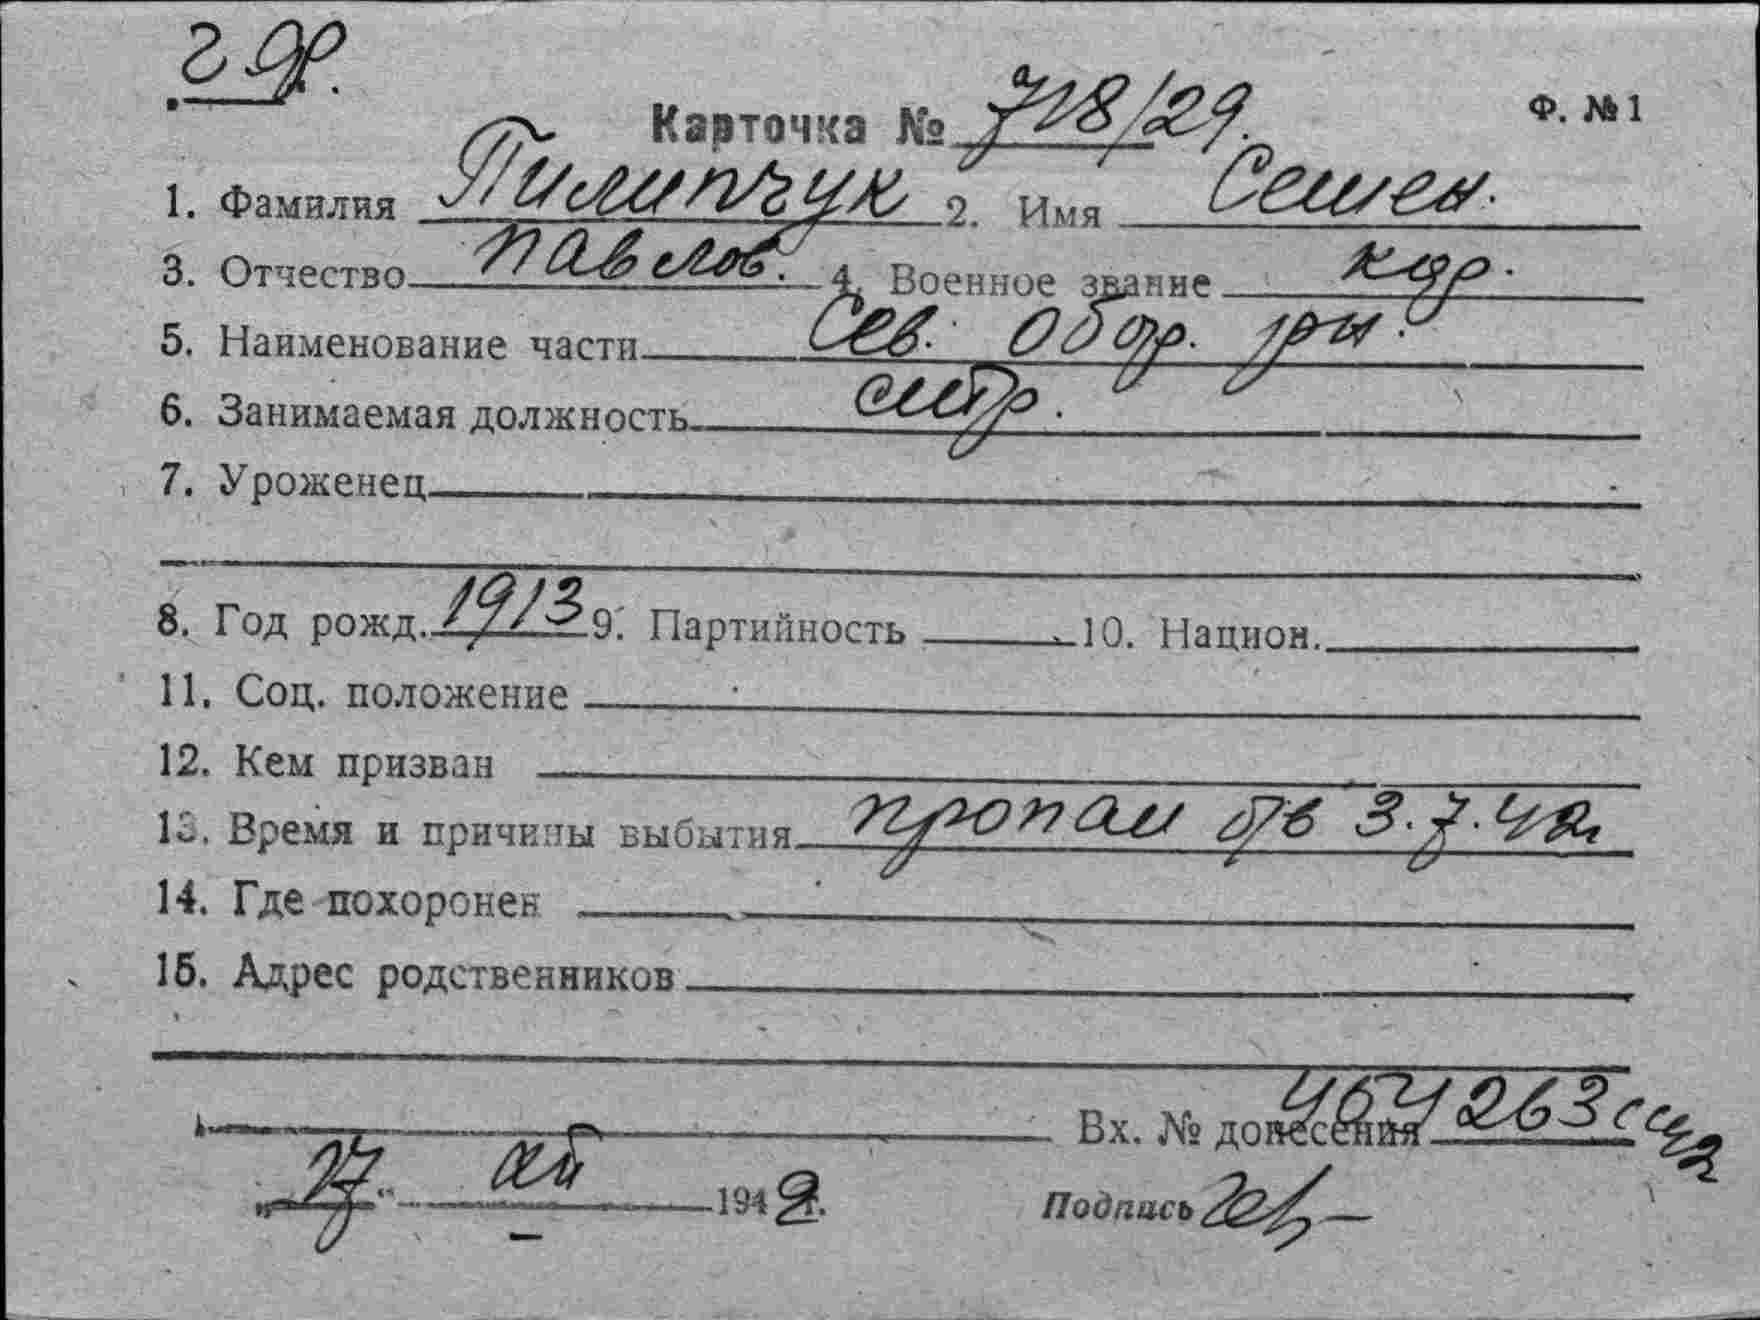 Ф. №1
Карточка № 718/29.
1. Фамилия Пилипчук 2. Имя Семен.
3. Отчество Павлов. 4. Военное звание кдр.
5. Наименование части Сев.
6. Занимаемая должность
7. Уроженец
8. Год рожд. 1913 9. Партийность 10. Национ.
11. Соц. положение
12. Кем призван
13. Время и причины выбытия пропал 3.7.42
14. Где похоронен
15. Адрес родственников
Вх. № донесения
27 1942.
Подпись